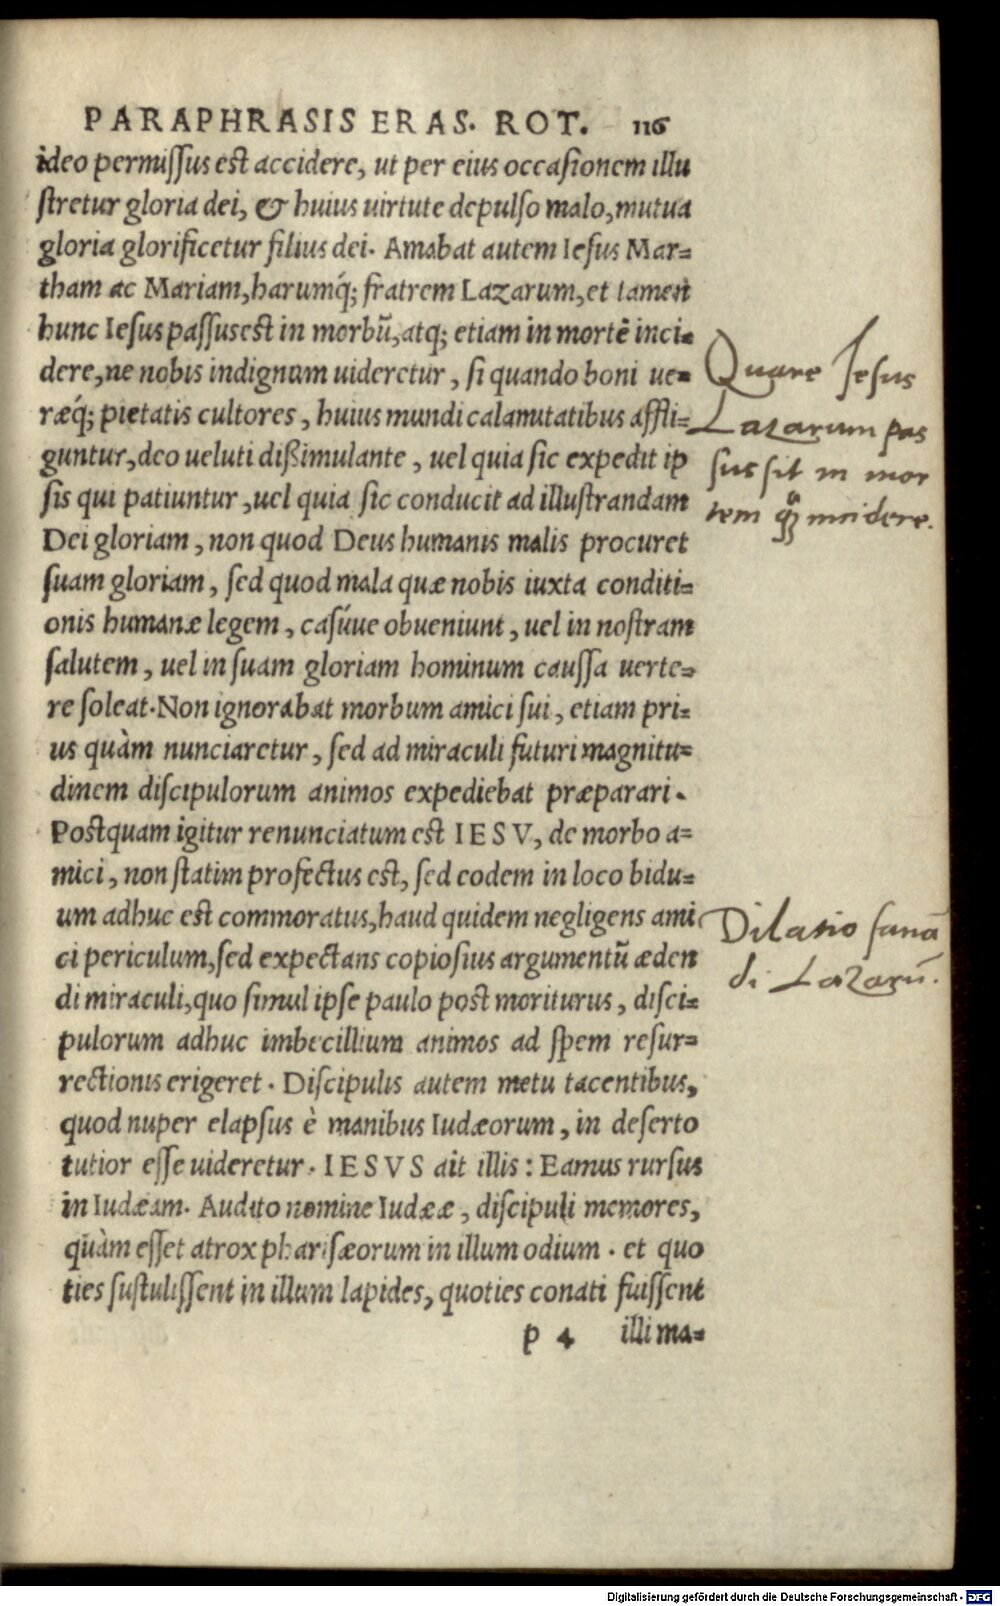 PARAPHRASIS ERAS. ROT. 116
ideo permissus est accidere, ut per eius occasionem illu
stretur gloria dei, & huius uirtute depulso malo, mutua
gloria glorificetur filius dei. Amabat autem Iesus Mar-
tham ac Mariam, harumq́; fratrem Lazarum, et tamen
hunc Iesus passus est in morbũ, atq; etiam in mortẽ inci-
dere, ne nobis indignum uideretur, si quando boni ue-
ræq́; pietatis cultores, huius mundi calamitatibus affli-
guntur, deo ueluti dißimulante, uel quia sic expedit ip
sis qui patiuntur, uel quia sic conducit ad illustrandam
Dei gloriam, non quod Deus humanis malis procuret
suam gloriam, sed quod mala quæ nobis iuxta conditi-
onis humanæ legem, casúue obueniunt, uel in nostram
salutem, uel in suam gloriam hominum caussa uerte-
re soleat. Non ignorabat morbum amici sui, etiam pri-
us quàm nunciaretur, sed ad miraculi futuri magnitu-
dinem discipulorum animos expediebat præparari.
Postquam igitur renunciatum est IESV, de morbo a-
mici, non statim profectus est, sed eodem in loco bidu-
um adhuc est commoratus, haud quidem negligens ami
ci periculum, sed expectans copiosius argumentũ æden
di miraculi, quo simul ipse paulo post moriturus, disci-
pulorum adhuc imbecillium animos ad spem resur-
rectionis erigeret. Discipulis autem metu tacentibus,
quod nuper elapsus è manibus Iudæorum, in deserto
tutior esse uideretur. IESVS ait illis: Eamus rursus
in Iudæam. Audito nomine Iudææ, discipuli memores,
quàm esset atrox pharisæorum in illum odium. et quo
ties sustulissent in illum lapides, quoties conati fuissent
p 4 illi ma-
Quare Iesus
Lazarum pas
sus sit in mor
tem incidere.
Dilatio sanã
di Lazarũ.